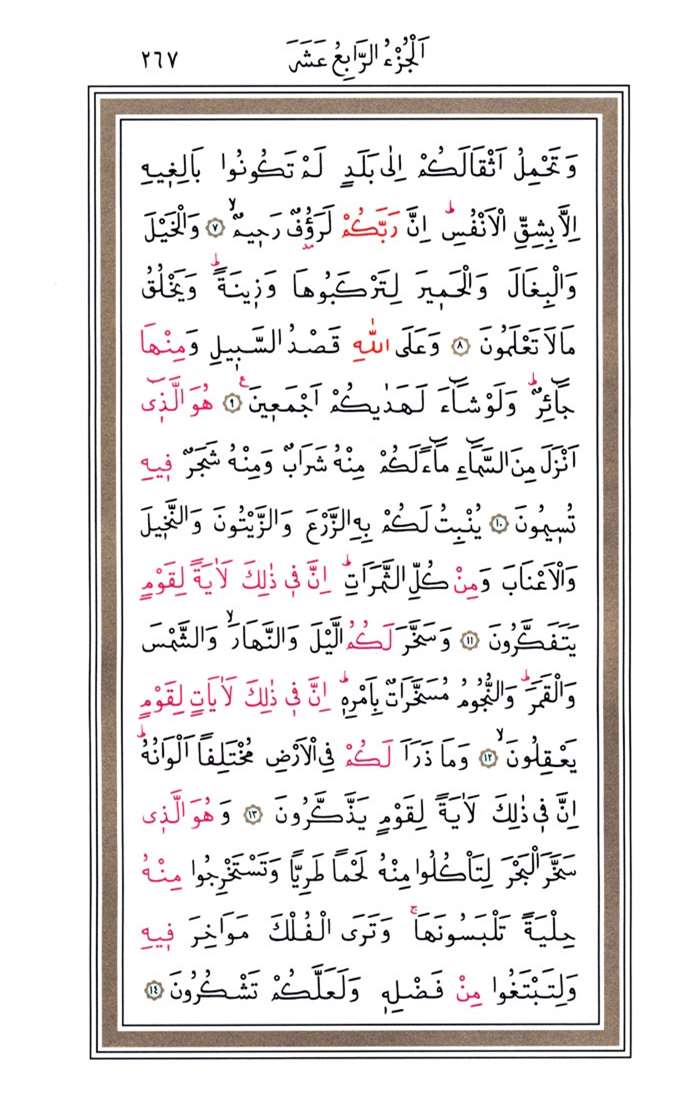 اَلْجُزْءُ الرَّابِعُ عَشَرَ
٢٦٧
وَتَحْمِلُ اَثْقَالَكُمْ اِلٰى بَلَدٍ لَمْ تَكُونُوا بَالِغِيهِ
اِلَّا بِشِقِّ الْاَنْفُسِۜ اِنَّ رَبَّكُمْ لَرَؤُ۫فٌ رَحِيمٌۙ ﴿٧﴾ وَالْخَيْلَ
وَالْبِغَالَ وَالْحَمِيرَ لِتَرْكَبُوهَا وَزِينَةًۜ وَيَخْلُقُ
مَالَا تَعْلَمُونَ ﴿٨﴾ وَعَلَى اللّٰهِ قَصْدُ السَّبِيلِ وَمِنْهَا
جَٓائِرٌۜ وَلَوْ شَٓاءَ لَهَدٰيكُمْ اَجْمَعِينَ۟ ﴿٩﴾ هُوَ الَّذِٓى
اَنْزَلَ مِنَ السَّمَٓاءِ مَٓاءً لَكُمْ مِنْهُ شَرَابٌ وَمِنْهُ شَجَرٌ فِيهِ
تُسِيمُونَ ﴿١٠﴾ يُنْبِتُ لَكُمْ بِهِ الزَّرْعَ وَالزَّيْتُونَ وَالنَّخِيلَ
وَالْاَعْنَابَ وَمِنْ كُلِّ الثَّمَرَاتِۜ اِنَّ فِى ذٰلِكَ لَاٰيَةً لِقَوْمٍ
يَتَفَكَّرُونَ ﴿١١﴾ وَسَخَّرَ لَكُمُ الَّيْلَ وَالنَّهَارَۙ وَالشَّمْسَ
وَالْقَمَرَۜ وَالنُّجُومُ مُسَخَّرَاتٌ بِاَمْرِهِۜ اِنَّ فِى ذٰلِكَ لَاٰيَاتٍ لِقَوْمٍ
يَعْقِلُونَۙ ﴿١٢﴾ وَمَا ذَرَاَ لَكُمْ فِى الْاَرْضِ مُخْتَلِفًا اَلْوَانُهُۜ
اِنَّ فِى ذٰلِكَ لَاٰيَةً لِقَوْمٍ يَذَّكَّرُونَ ﴿١٣﴾ وَهُوَ الَّذِى
سَخَّرَ الْبَحْرَ لِتَأْكُلُوا مِنْهُ لَحْمًا طَرِيًّا وَتَسْتَخْرِجُوا مِنْهُ
حِلْيَةً تَلْبَسُونَهَاۚ وَتَرَى الْفُلْكَ مَوَاخِرَ فِيهِ
وَلِتَبْتَغُوا مِنْ فَضْلِهِ وَلَعَلَّكُمْ تَشْكُرُونَ ﴿١٤﴾